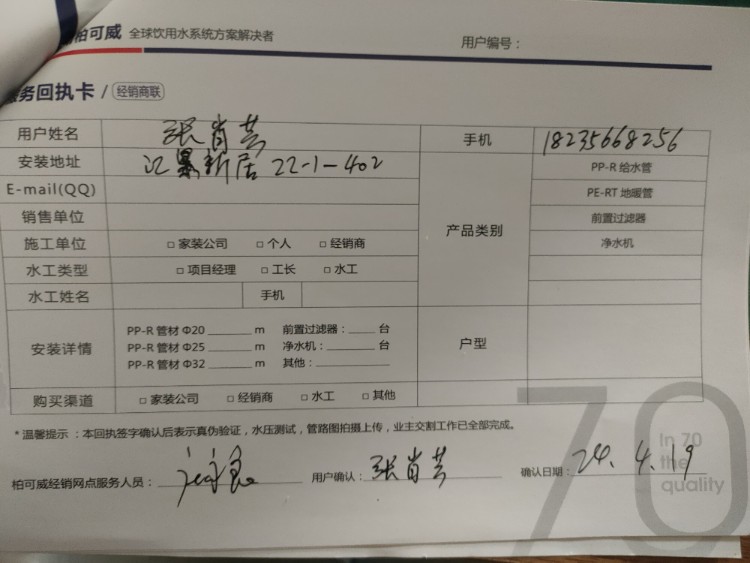 柏可威 全球饮用水系统方案解决者
用户编号：
务回执卡 / 经销商联
用户姓名 张肖芸 手机 18235668256
安装地址 汇景新居 22-1-402 PP-R 给水管
E-mail(QQ) PE-RT 地暖管
销售单位 产品类别 前置过滤器
施工单位 □ 家装公司 □ 个人 □ 经销商 净水机
水工类型 □ 项目经理 □ 工长 □ 水工
水工姓名 手机
安装详情 户型
PP-R 管材 Φ20 ______ m 前置过滤器：____ 台
PP-R 管材 Φ25 ______ m 净水机：____ 台
PP-R 管材 Φ32 ______ m 其他：______
购买渠道 □ 家装公司 □ 经销商 □ 水工 □ 其他
* 温馨提示 ：本回执签字确认后表示真伪验证，水压测试，管路图拍摄上传，业主交割工作已全部完成。
柏可威经销网点服务人员： 用户确认：张肖芸 确认日期：24.4.19
70
In 70
the
quality